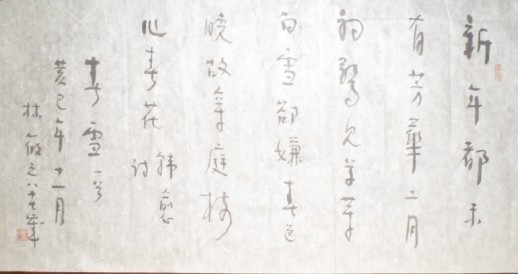 新年都未
有芳華二月
初驚見草芽
白雪卻嫌春色
晚故穿庭樹
作飛花
韓愈
詩
春雪一首
癸巳年十一月
林筱之